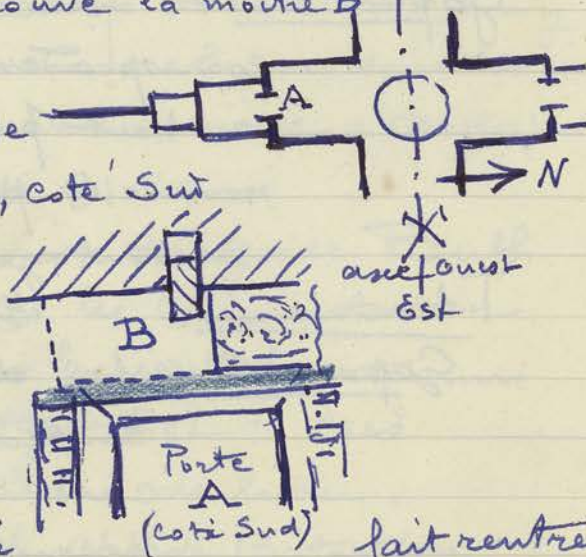 ouve la moitié B
A
e
N
, coté Sud
X'
axe Ouest
Est
B
Porte
A
(coté Sud) fait rentre